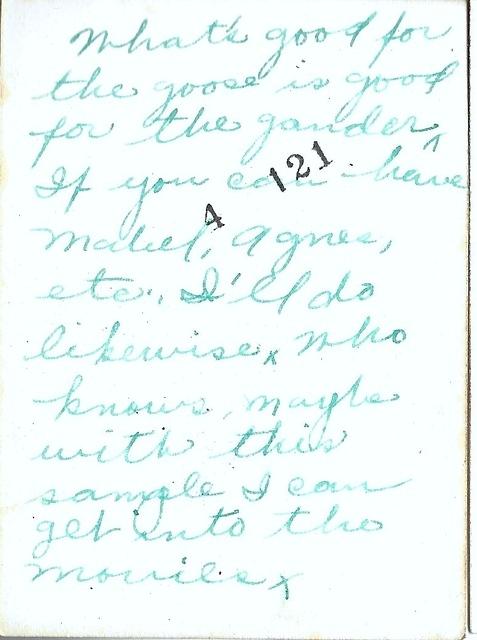 What's good for
the goose is good
for the gander.
If you can have
4 121
Mabel, Agnes,
etc., I'll do
likewise. Who
knows, maybe
with this
sample I can
get into the
movies.